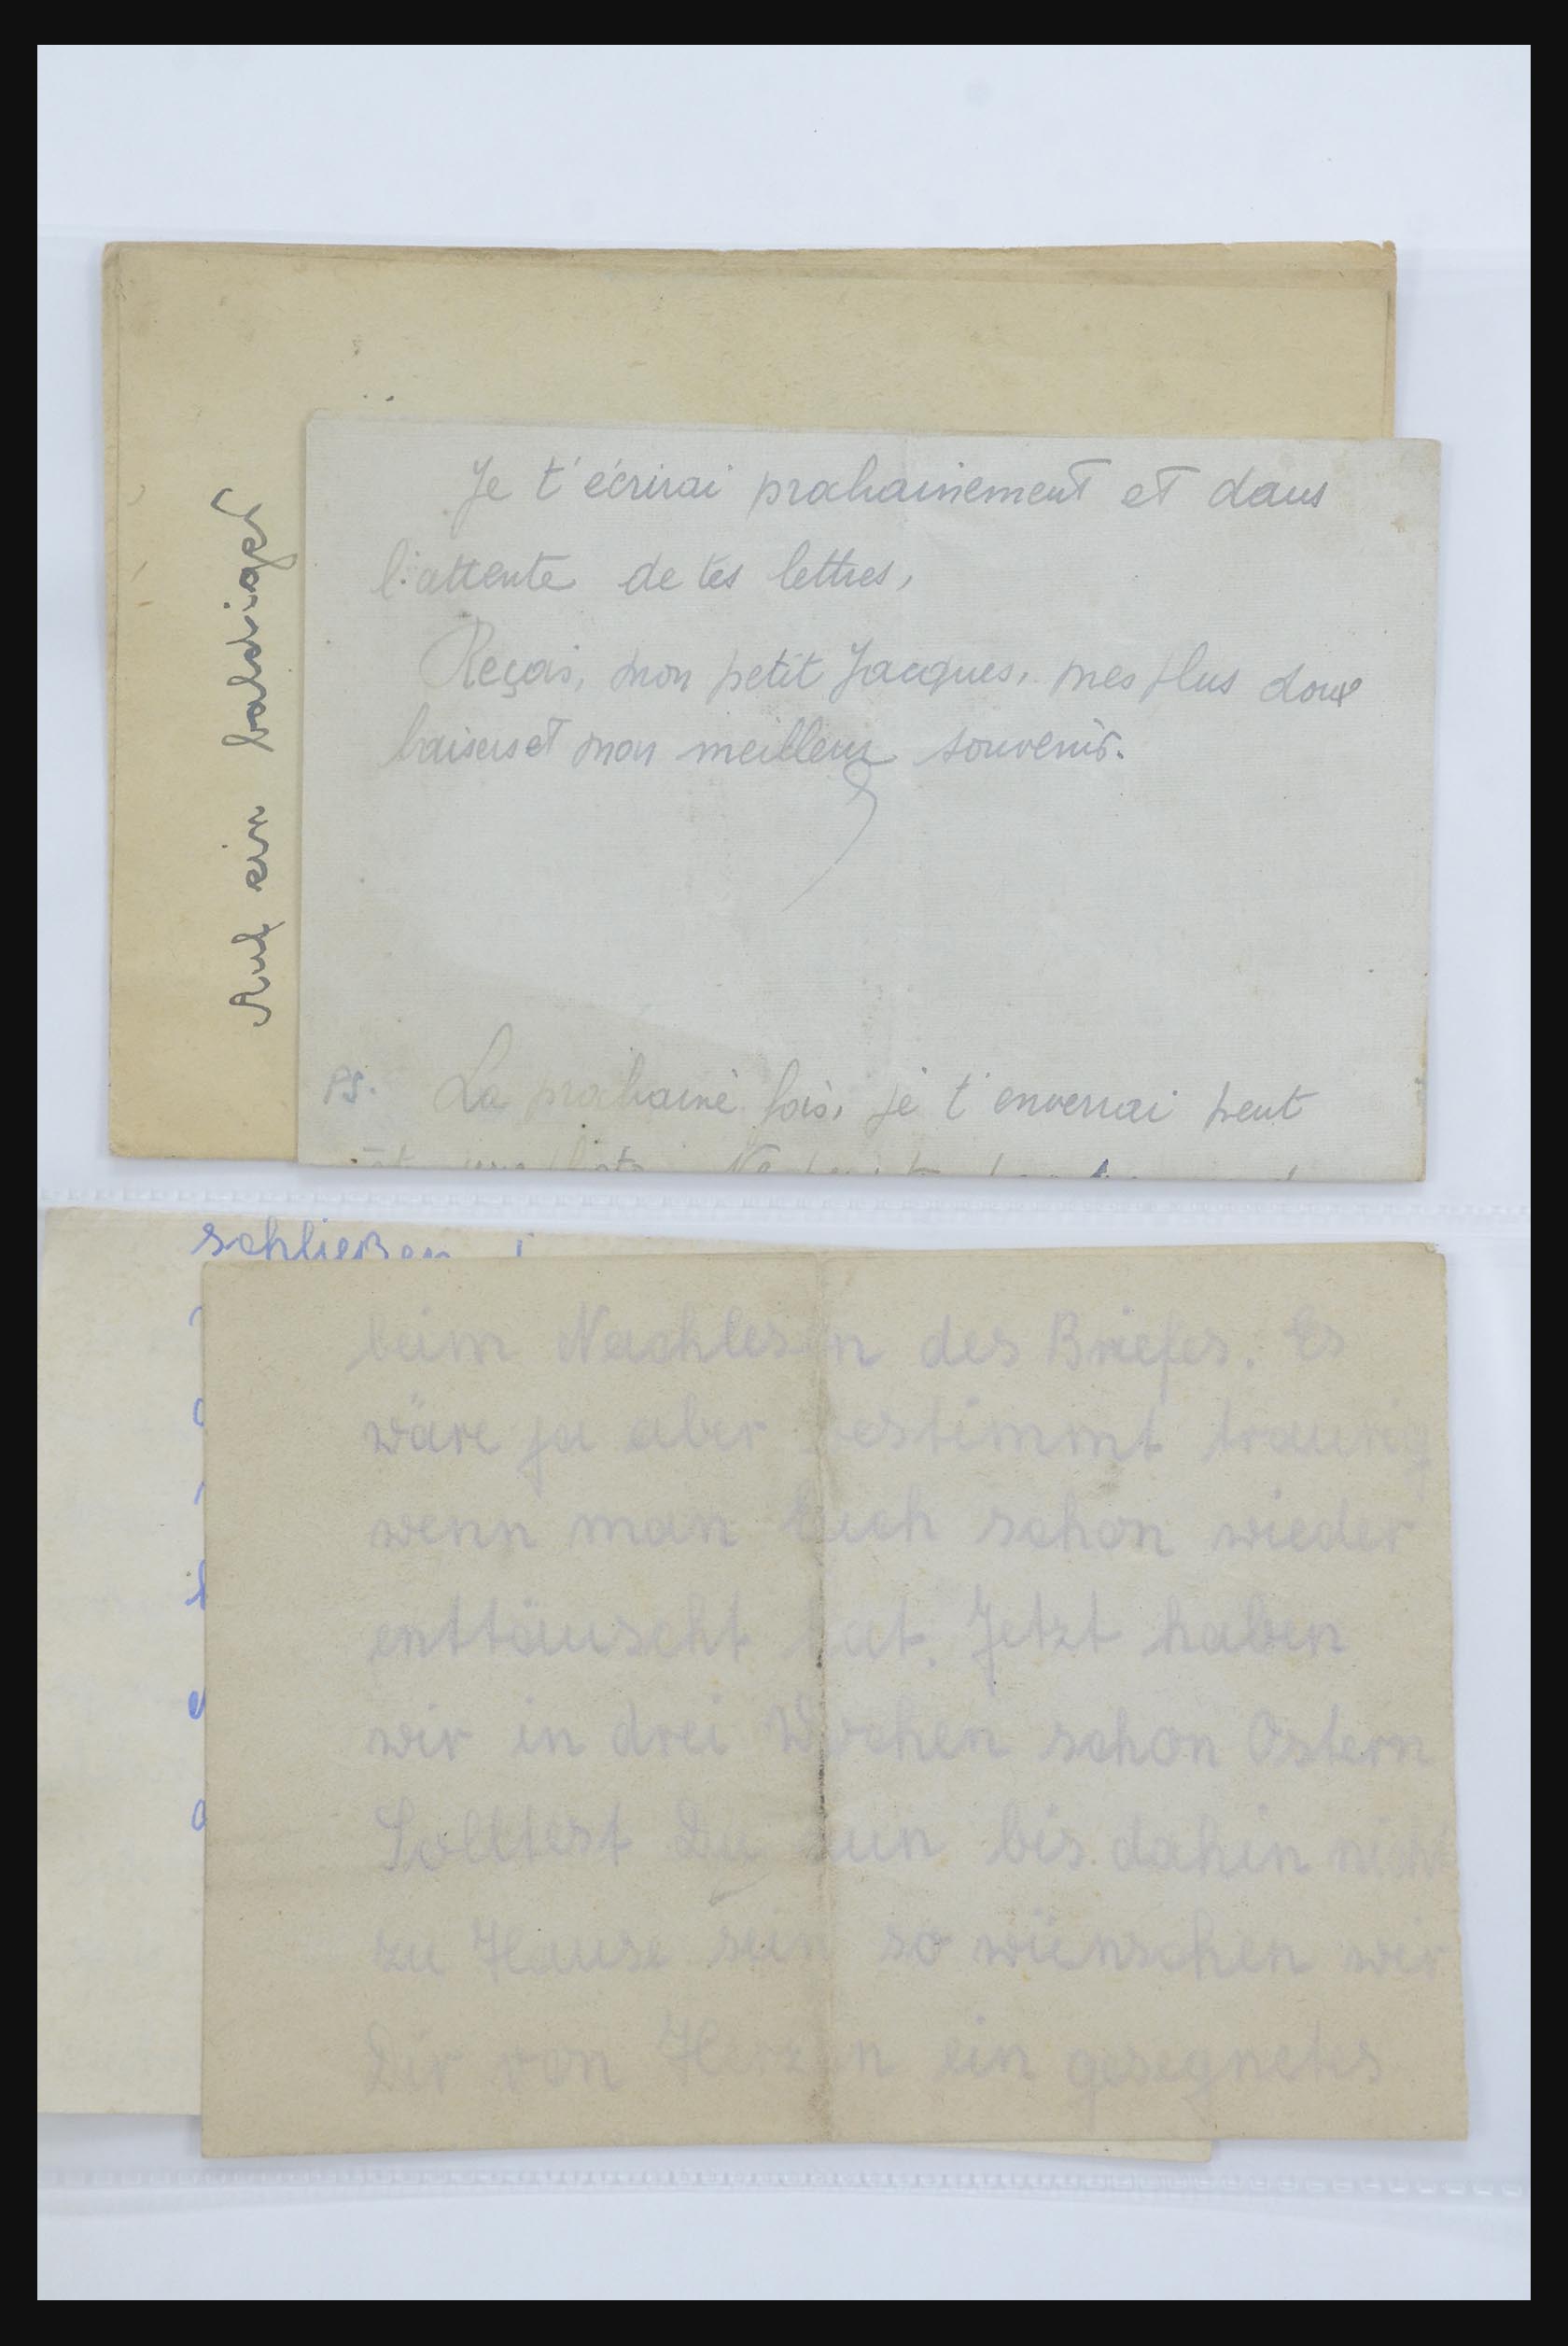 Auf ein baldiges
Je t'écrirai prochainement et dans
l'attente de tes lettres,
Reçois, mon petit Jacques, mes plus doux
baisers et mon meilleur souvenir.
PS. La prochaine fois, je t'enverrai peut
schließen
beim Nachlesen des Briefes. Es
wäre ja aber bestimmt traurig
wenn man Euch schon wieder
enttäuscht hat. Jetzt haben
wir in drei Wochen schon Ostern
Solltest Du nun bis dahin nicht
zu Hause sein so wünschen wir
Dir von Herzen ein gesegnetes